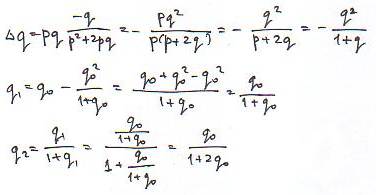 Δq = pq \frac{-q}{p²+2pq} = - \frac{pq²}{p(p+2q)} = - \frac{q²}{p+2q} = - \frac{q²}{1+q}
q₁ = q₀ - \frac{q₀²}{1+q₀} = \frac{q₀+q₀²-q₀²}{1+q₀} = \frac{q₀}{1+q₀}
q₂ = \frac{q₁}{1+q₁} = \frac{\frac{q₀}{1+q₀}}{1+\frac{q₀}{1+q₀}} = \frac{q₀}{1+2q₀}